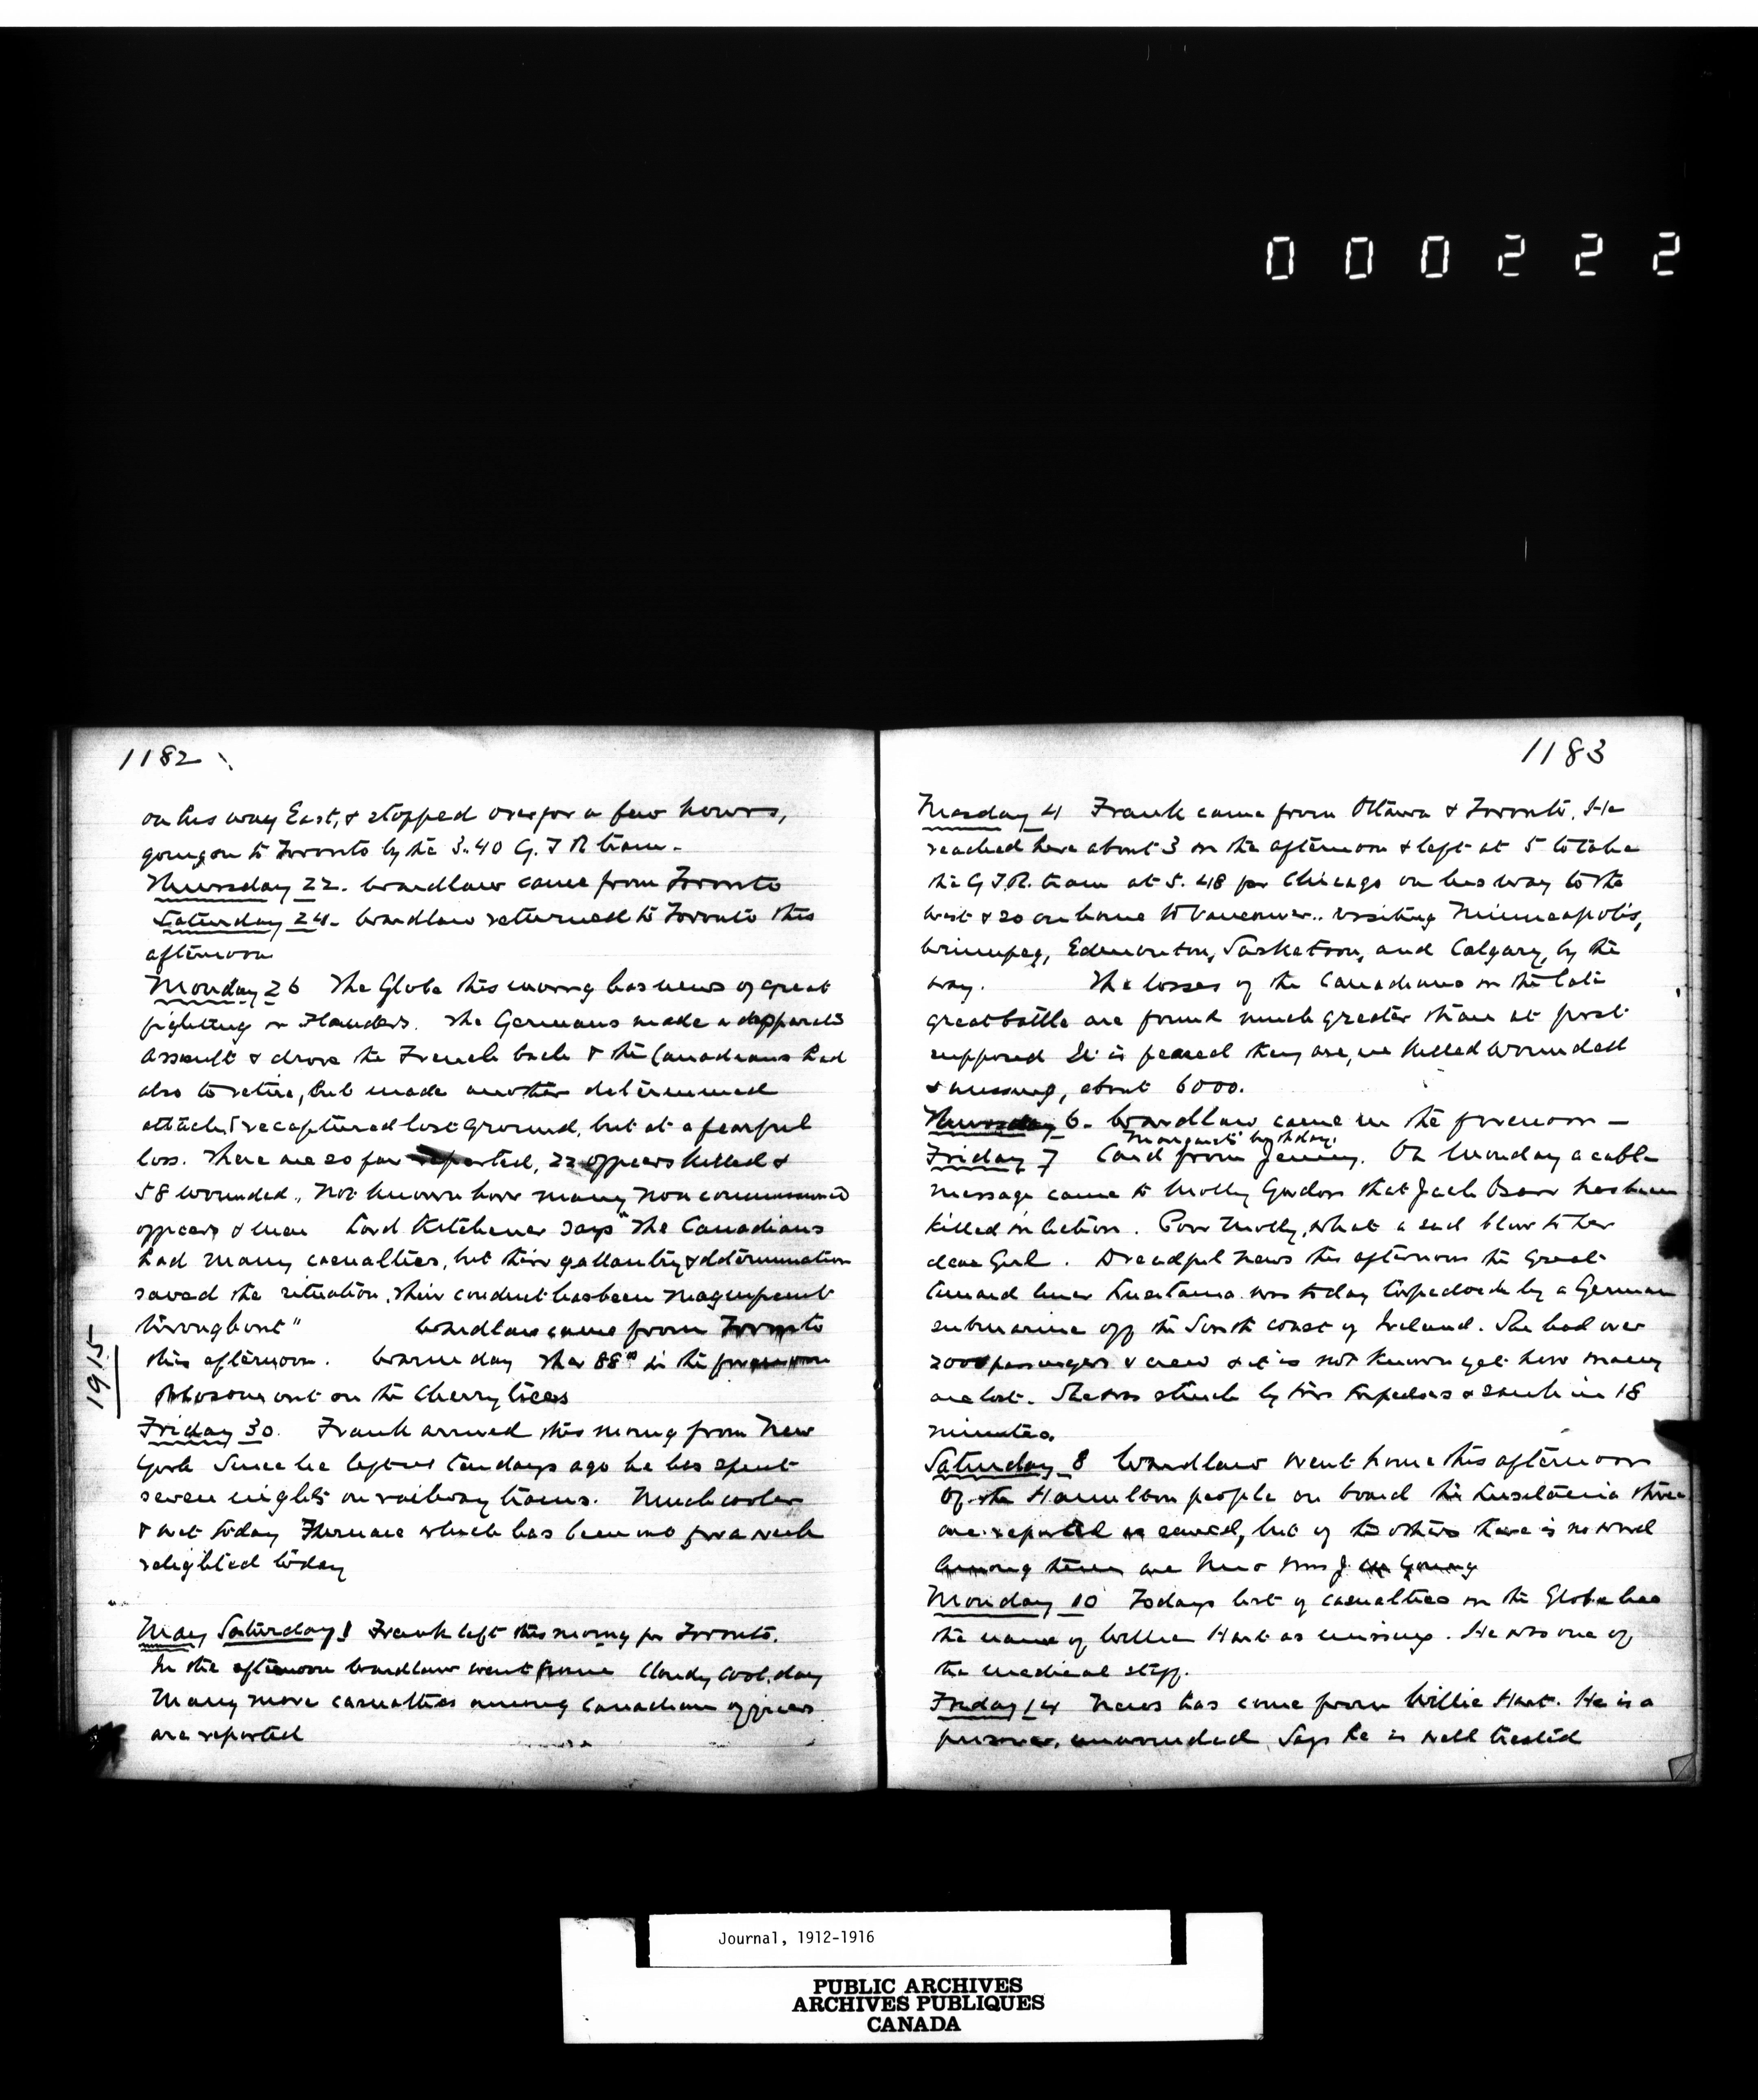 000222
1182
on his way East, & stopped over for a few hours,
going on to Toronto by the 3.40 G. T R train.
Thursday 22. Wardlaw came from Toronto
Saturday 24. Wardlaw returned to Toronto this
afternoon
Monday 26 The Globe this morng has news of great
fighting in Flanders. The Germans made a desperate
assault & drove the French back & the Canadians had
also to retire, but made another determined
attack & recaptured lost ground, but at a fearful
loss. There are so far reported, 22 officers killed &
58 wounded. Not known how many non commissioned
officers & men Lord Kitchener says "The Canadians
had many casualties, but their gallantry & determination
saved the situation, their conduct has been magnificent
throughout" Wardlaw came from Toronto
this afternoon. Warm day Ther 88° in the forenoon
Blossoms out on the Cherry trees
1915
Friday 30. Frank arrived this morng from New
York Since he left us ten days ago he has spent
seven nights on railway trains. Much cooler
& wet today Furnace which has been out for a week
relighted today
May Saturday 1 Frank left this morng for Toronto.
In the afternoon Wardlaw went home Cloudy cool day
Many more casualties among Canadian officers
are reported
1183
Tuesday 4 Frank came from Ottawa & Toronto. He
reached here about 3 in the afternoon & left at 5 to take
the G.T.R. train at 5.48 for Chicago on his way to the
West & so on home to Vancouver.. visiting Minneapolis,
Winnipeg, Edmonton, Sasketoon, and Calgary, by the
way. The losses of the Canadians in the late
great battle are found much greater than at first
supposed It is feared they are, in killed wounded
& missing, about 6000.
Thursday 6. Wardlaw came in the forenoon —
Margaret's birthday.
Friday 7 Card from Jenny. On Monday a cable
message came to Molly Gordon that Jack has been
killed in action. Poor Molly, what a sad blow to her
dear Girl. Dreadful news this afternoon the great
Cunard liner Lusitania was today torpedoed by a German
submarine off the South coast of Ireland. She had over
2000 passengers & crew & it is not known yet how many
are lost. She was struck by two torpedoes & sank in 18
minutes.
Saturday 8 Wardlaw went home this afternoon
Of the Hamilton people on board the Lusitania three
are reported as saved, but of the others there is no word
Among them are Mr & Mrs J. Young
Monday 10 Todays list of casualties in the Globe has
the name of Willie Hart as missing. He was one of
the medical staff.
Friday 14 News has come from Willie Hart. He is a
prisoner, unwounded, says he is well treated
Journal, 1912-1916
PUBLIC ARCHIVES
ARCHIVES PUBLIQUES
CANADA